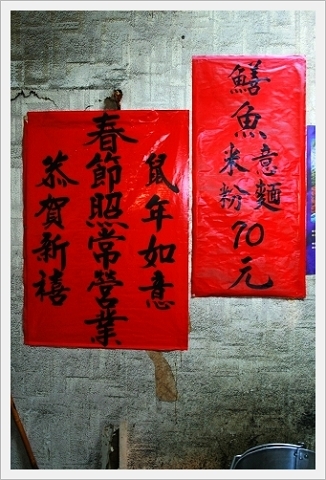 鱔魚意麵
米粉
70元
鼠年如意
春節照常營業
恭賀新禧